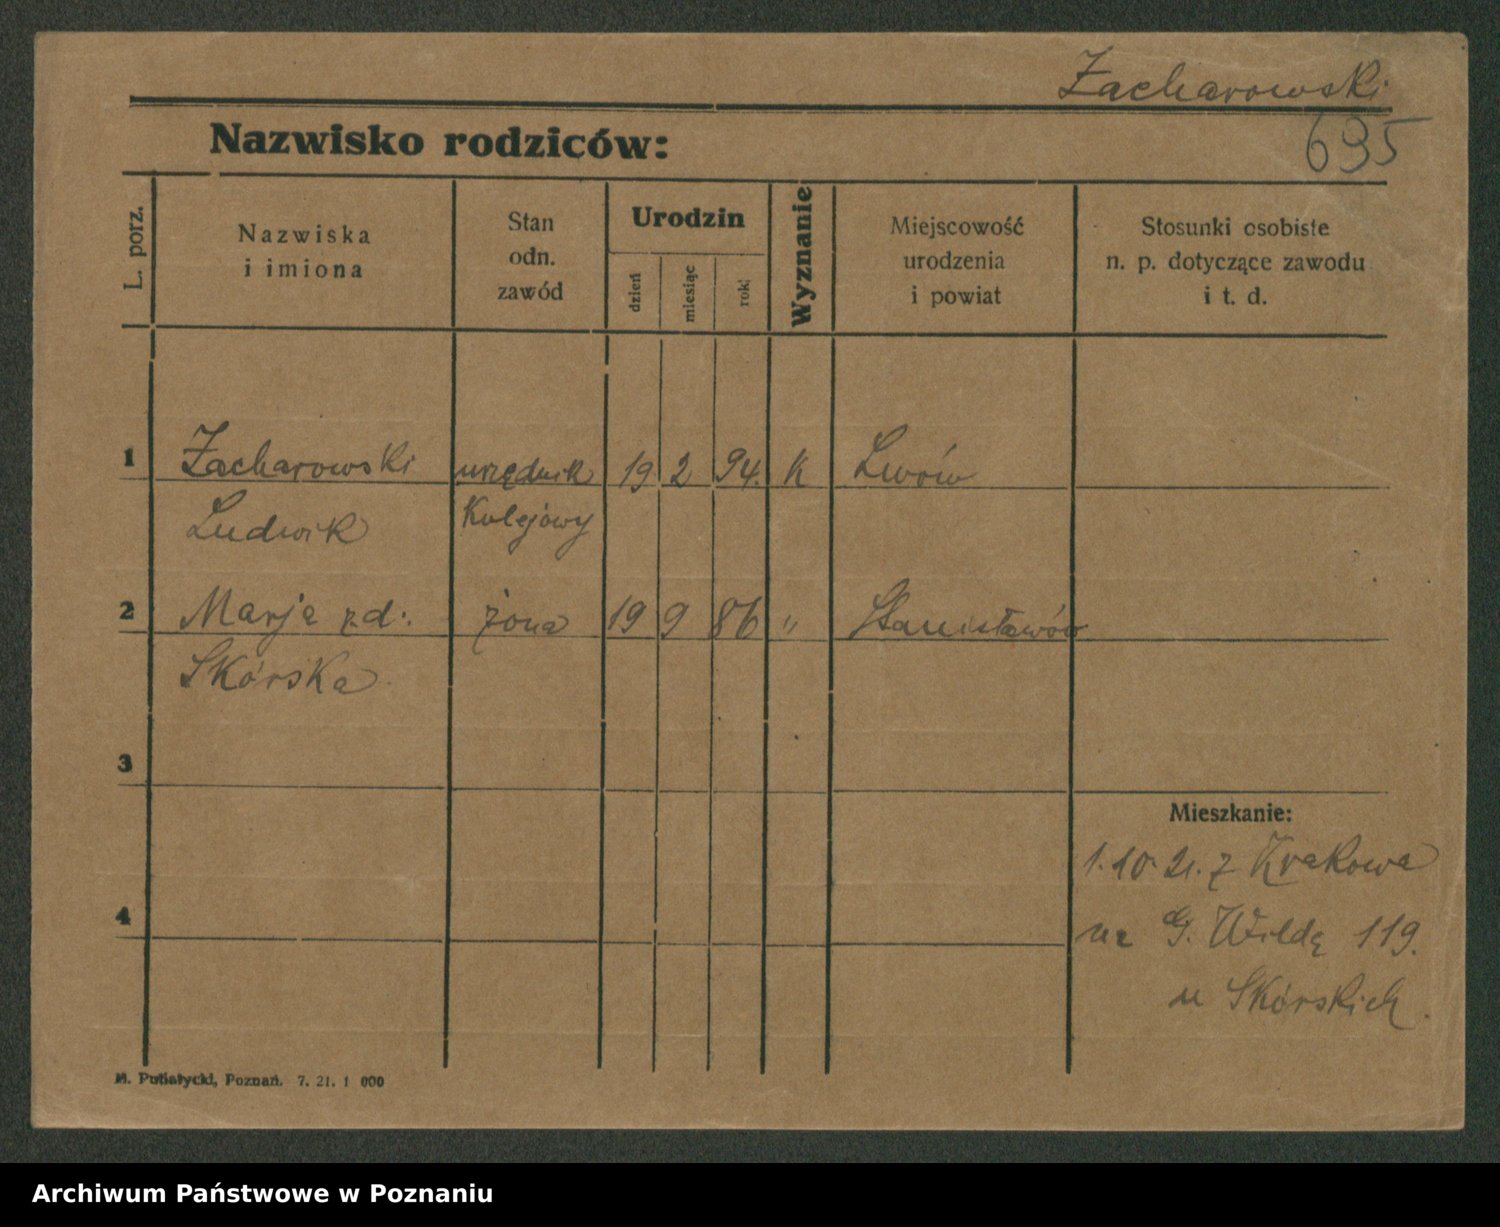 Zacharowski
695
Nazwisko rodziców:
L. porz.
Nazwiska
i imiona
Stan
odn.
zawód
Urodzin
dzień
miesiąc
rok
Wyznanie
Miejscowość
urodzenia
i powiat
Stosunki osobiste
n. p. dotyczące zawodu
i t. d.
1 Zacharowski urzędnik 19 2 94. K Lwów
Ludwik Kolejowy
2 Marja zd. żona 19 9 86 " Stanisławów
Skórska
3
Mieszkanie:
1.10.21. z Krakowa
4
na G. Wildę 119.
u Skórskich.
M. Putiatycki, Poznań. 7. 21. 1 000
Archiwum Państwowe w Poznaniu